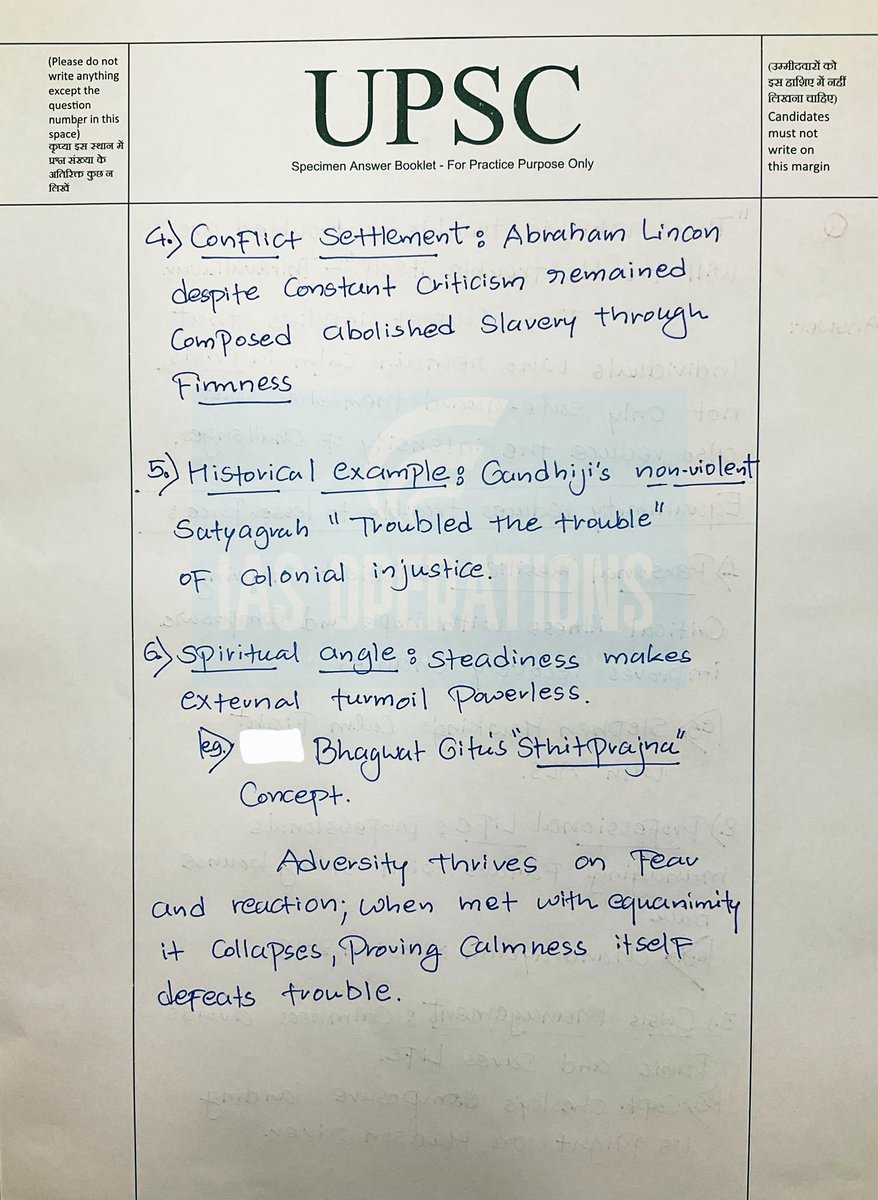 (Please do not
write anything
except the
question
number in this
space)
कृप्या इस स्थान में
प्रश्न संख्या के
अतिरिक्त कुछ न
लिखें
UPSC
Specimen Answer Booklet - For Practice Purpose Only
(उम्मीदवारों को
इस हाशिए में नहीं
लिखना चाहिए)
Candidates
must not
write on
this margin
4.) Conflict Settlement: Abraham Lincon
despite constant criticism remained
composed abolished slavery through
Firmness
5.) Historical example: Gandhiji's non-violent
Satyagrah "Troubled the trouble"
of colonial injustice.
6.) Spiritual angle: steadiness makes
external turmoil powerless.
eg. Bhagwat Gita's "Sthitprajna"
concept.
Adversity thrives on fear
and reaction; when met with equanimity
it collapses, proving calmness itself
defeats trouble.
IAS OPERATIONS